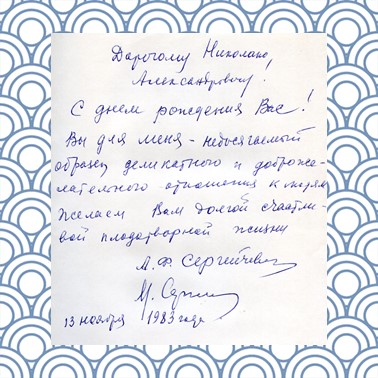 Дорогому Николаю
Александровичу!
С днем рождения Вас!
Вы для меня - недосягаемый
образец деликатного и доброже-
лательного отношения к людям
Желаем Вам долгой счастли-
вой плодотворной жизни
А. Ф. Сергейчев
М. Серг
13 ноября 1983 года